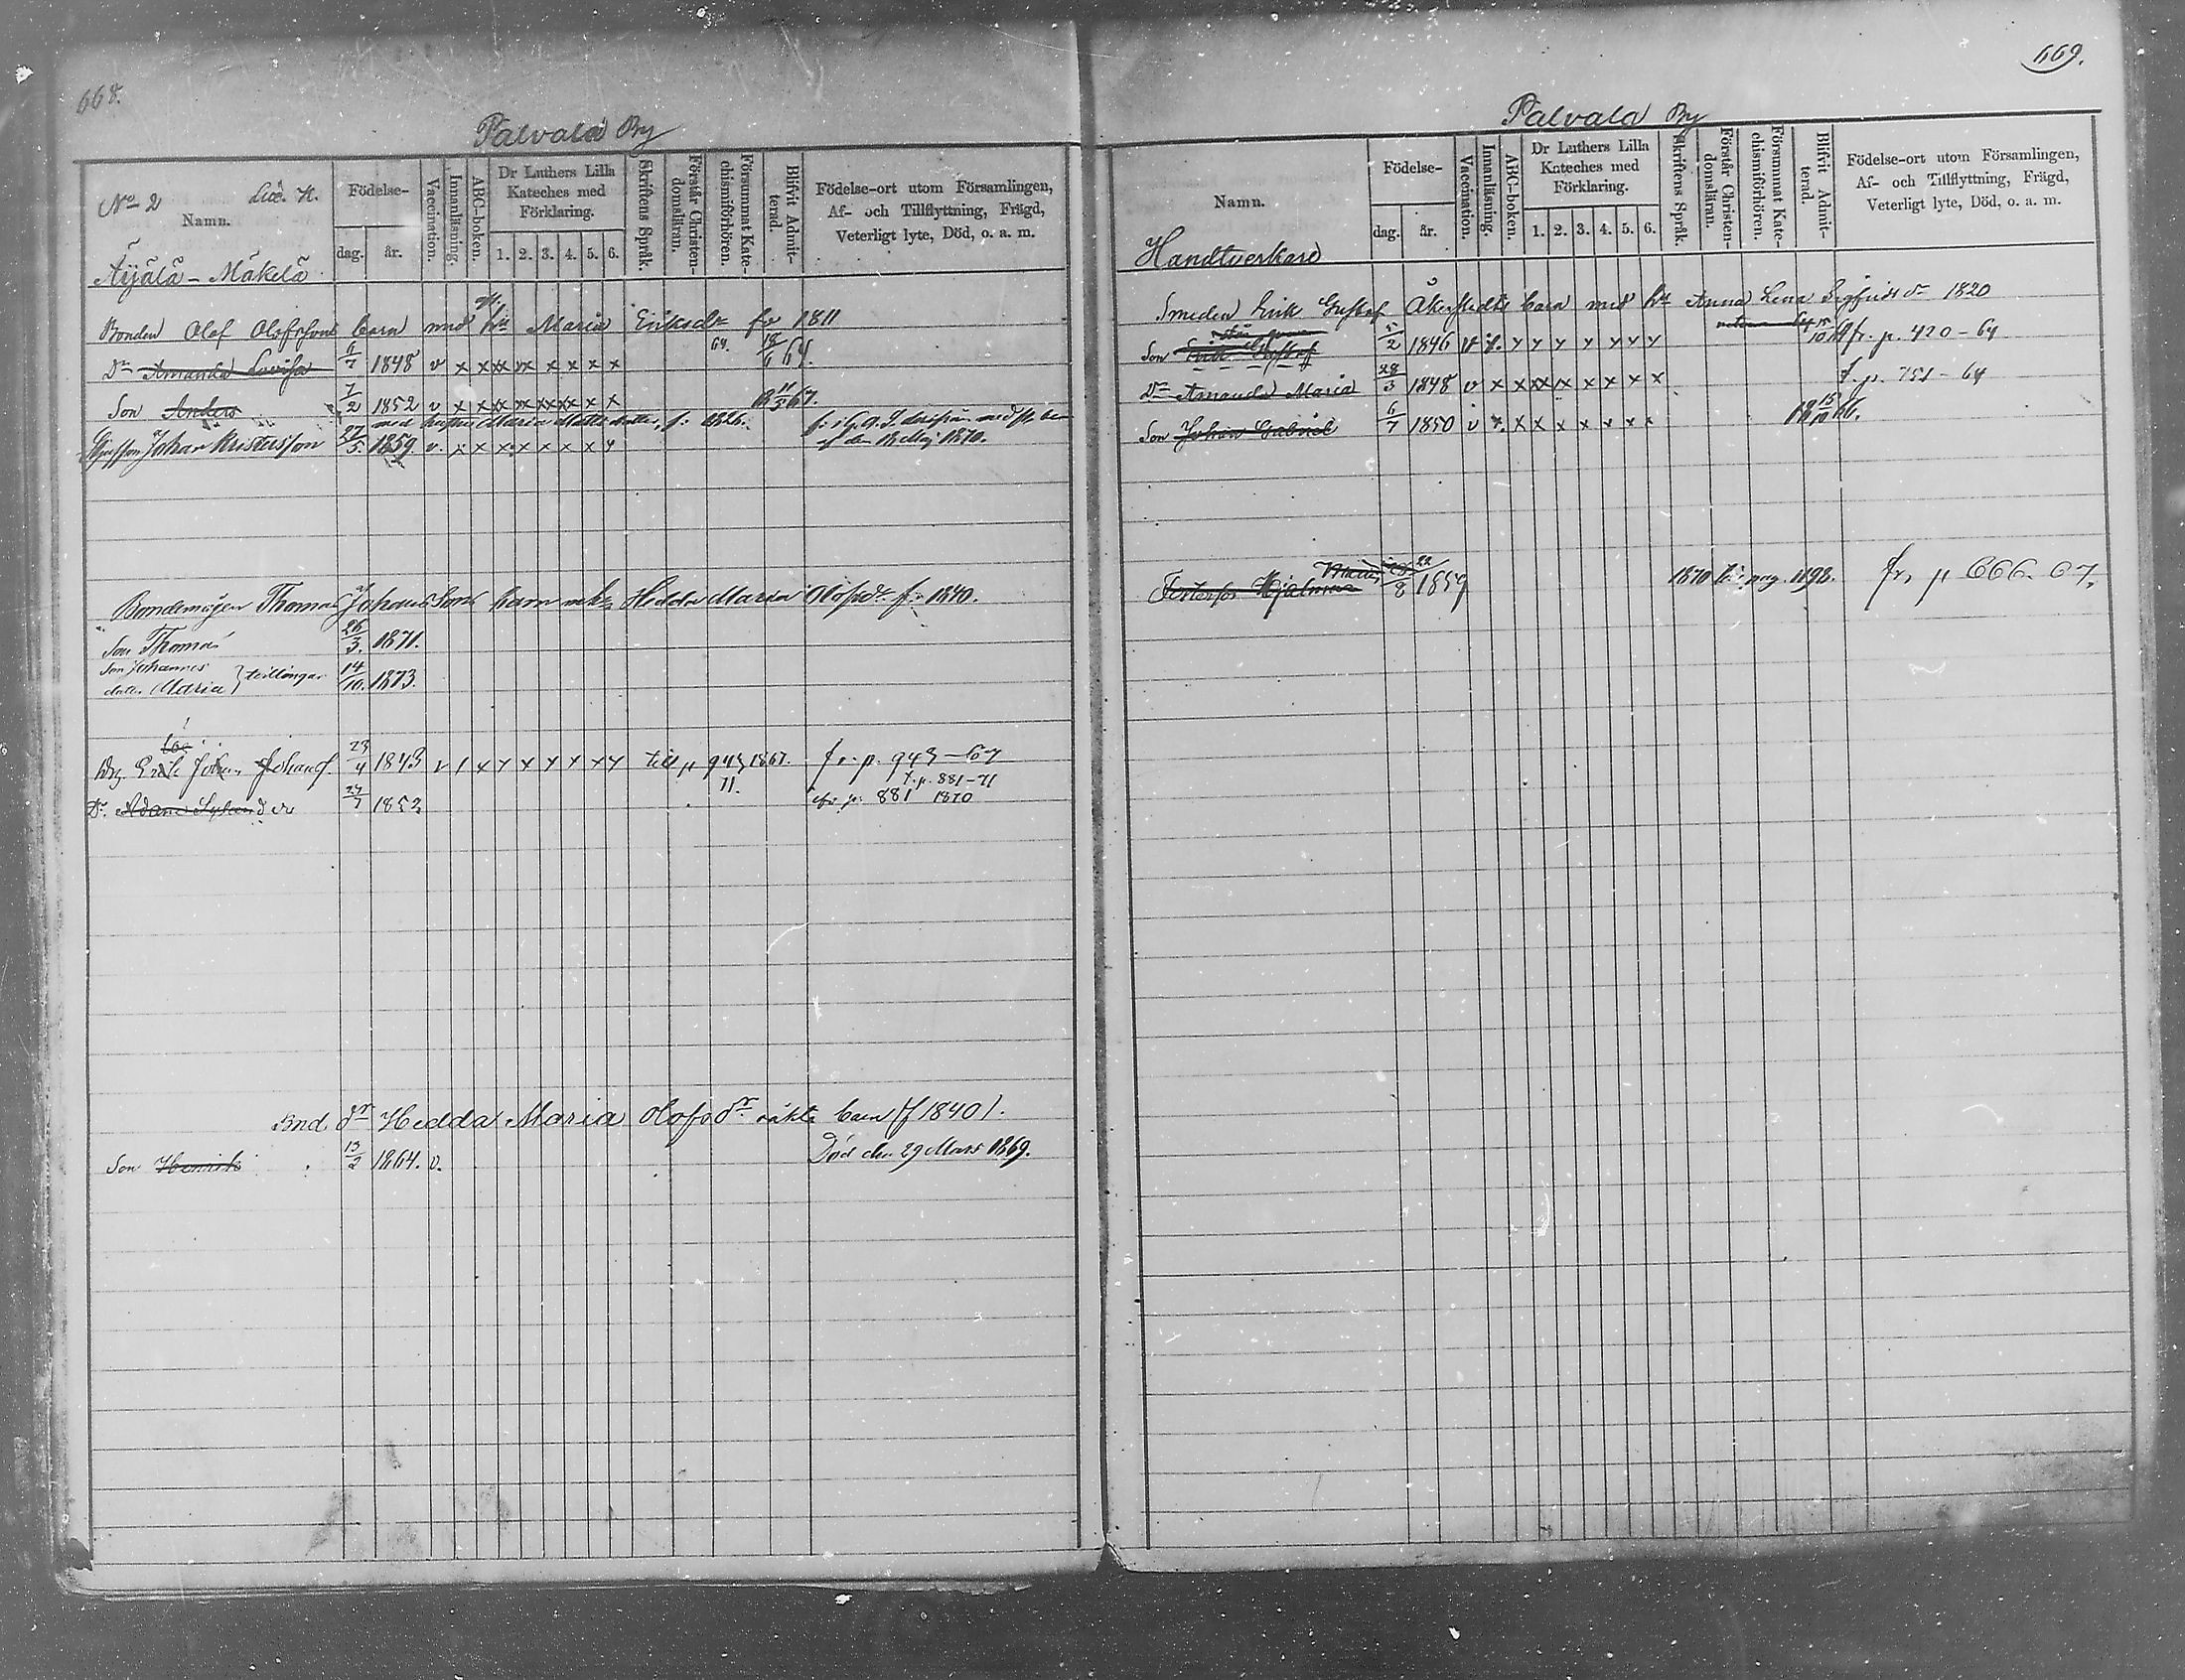 668.
Palvala By
No 2
Namn.
Födelse-
dag.
år.
Vaccination.
Innanläsning.
ABC-boken.
Dr Luthers Lilla Kateches med Förklaring.
1. 2. 3. 4. 5. 6.
Skriftens Språk.
Förstår Christendomsläran.
Försummat Katechismiförhören.
Blifvit Admitterad.
Födelse-ort utom Församlingen,
Af- och Tillflyttning, Frägd,
Veterligt lyte, Död, o. a. m.
Äijälä - Mäkelä
Bonden Olof Olofssons barn med h:u Maria Eriksdr 1811
Dr Amanda Lovisa 6/7 1848 v x x xx xx x x x x 18/6 64.
Son Anders 7/2 1852 v x x xx xx xx xx x x 67.
med hustru Maria f: 1826.
Johan Kristersson 27/5. 1859. v. x x x x x x x y
den 18 Maj 1870.
Bondemågen Thomas Johansson barn Hedda Maria Olofsdr f: 1840.
Son Thomas 26/3. 1871.
Son Johannes
dotter Maria } tvillingar 14/10. 1873.
Drg. Erik Johan Johansf. 23/4 1843 till p 943 1867. fr. p. 943 - 67
71. t. p. 881-71
Dr. 27/7 1852 fr p: 881 1870
Bnd dr Hedda Maria Olofsdr oäkta barn (f 1840).
Son Henrik 13/2 1864. v. Död den 29 Mars 1869.
669.
Palvala By
Namn.
Födelse-
dag.
år.
Vaccination.
Innanläsning.
ABC-boken.
Dr Luthers Lilla Kateches med Förklaring.
1. 2. 3. 4. 5. 6.
Skriftens Språk.
Förstår Christendomsläran.
Försummat Katechismiförhören.
Blifvit Admitterad.
Födelse-ort utom Församlingen,
Af- och Tillflyttning, Frägd,
Veterligt lyte, Död, o. a. m.
Handtverkare
Smeden Erik Gustaf Åkerstedts barn med h:u Anna Lena Sigfridsdr 1820
Son Erik Gustaf 5/2 1846 v x y y y y y y y fr. p. 420 - 64
Dr Amanda Maria 28/3 1848 v x x xx x x x x x t. p. 751 - 64
Son Johan Gabriel 6/7 1850 v x x x x x x x x 66.
Fosterson Hjalmar 22/8 1859 1870 1198. fr, p 666. 67,